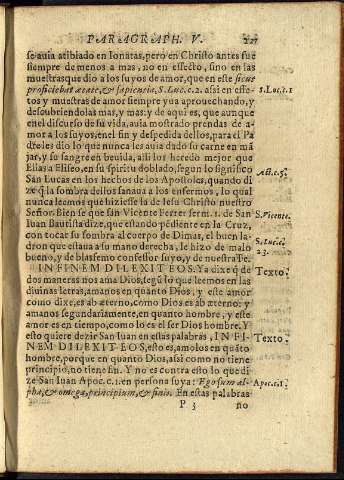 PARAGRAPH. V.
se auia atibiado en Ionatas, pero en Christo antes fue
siempre de menos a mas, no en effecto, sino en las
muestras que dio a los suyos de amor, que en este sicut
proficiebat ætate, & sapientia, S. Luc. c. 2. asi en esfe-
S. Luc. 2
tos y muestras de amor siempre yua aprouechando, y
descubriendolas mas, y mas: y de aqui es, que aunque
en el discurso de su vida, auia mostrado prendas de a-
mor a los suyos, en el fin y despedida dellos, para el Pa
dre les dio lo que nunca les auia dado su carne en má
jar, y su sangre en beuida, assi los heredo mejor que
Elias a Eliseo, en su spiritu doblado, segun lo significo
San Lucas en los hechos de los Apostoles, quando di
Act. c. 5.
ze q̃ la sombra dellos sanaua a los enfermos, lo qual
nunca leemos que hiziesse la de Iesu Christo nuestro
Señor. Bien se que san Vicente Ferrer serm. 1. de San
S. Vicente.
Iuan Bautista dize, que estando pendiente en la Cruz,
con tocar su sombra al cuerpo de Dimas, el buen la-
dron que estaua a su mano derecha, le hizo de malo
S. Luc. c.
23.
bueno, y de blasfemo confessor suyo, y de nuestra Fe.
IN FINEM DILEXIT EOS. Ya dixe q̃ de
Texto.
dos maneras nos ama Dios, segũ lo que leemos en las
diuinas letras, amanos en quanto Dios, y este amor
como dixe, es ab æterno, como Dios es ab æterno: y
amanos segundariamente, en quanto hombre, y este
amor es en tiempo, como lo es el ser Dios hombre. Y
esto quiere dezir San Iuan en estas palabras, IN FI-
Texto.
NEM DILEXIT EOS, esto es, amolos en quãto
hombre, porque en quanto Dios, assi como no tiene
principio, no tiene fin. Y no es contra esto lo que di
ze San Iuan Apoc. c. 1. en persona suya: Ego sum al-
Apoc. c. 1.
pha, & omega, principium, & finis. En estas palabras
P 3
no